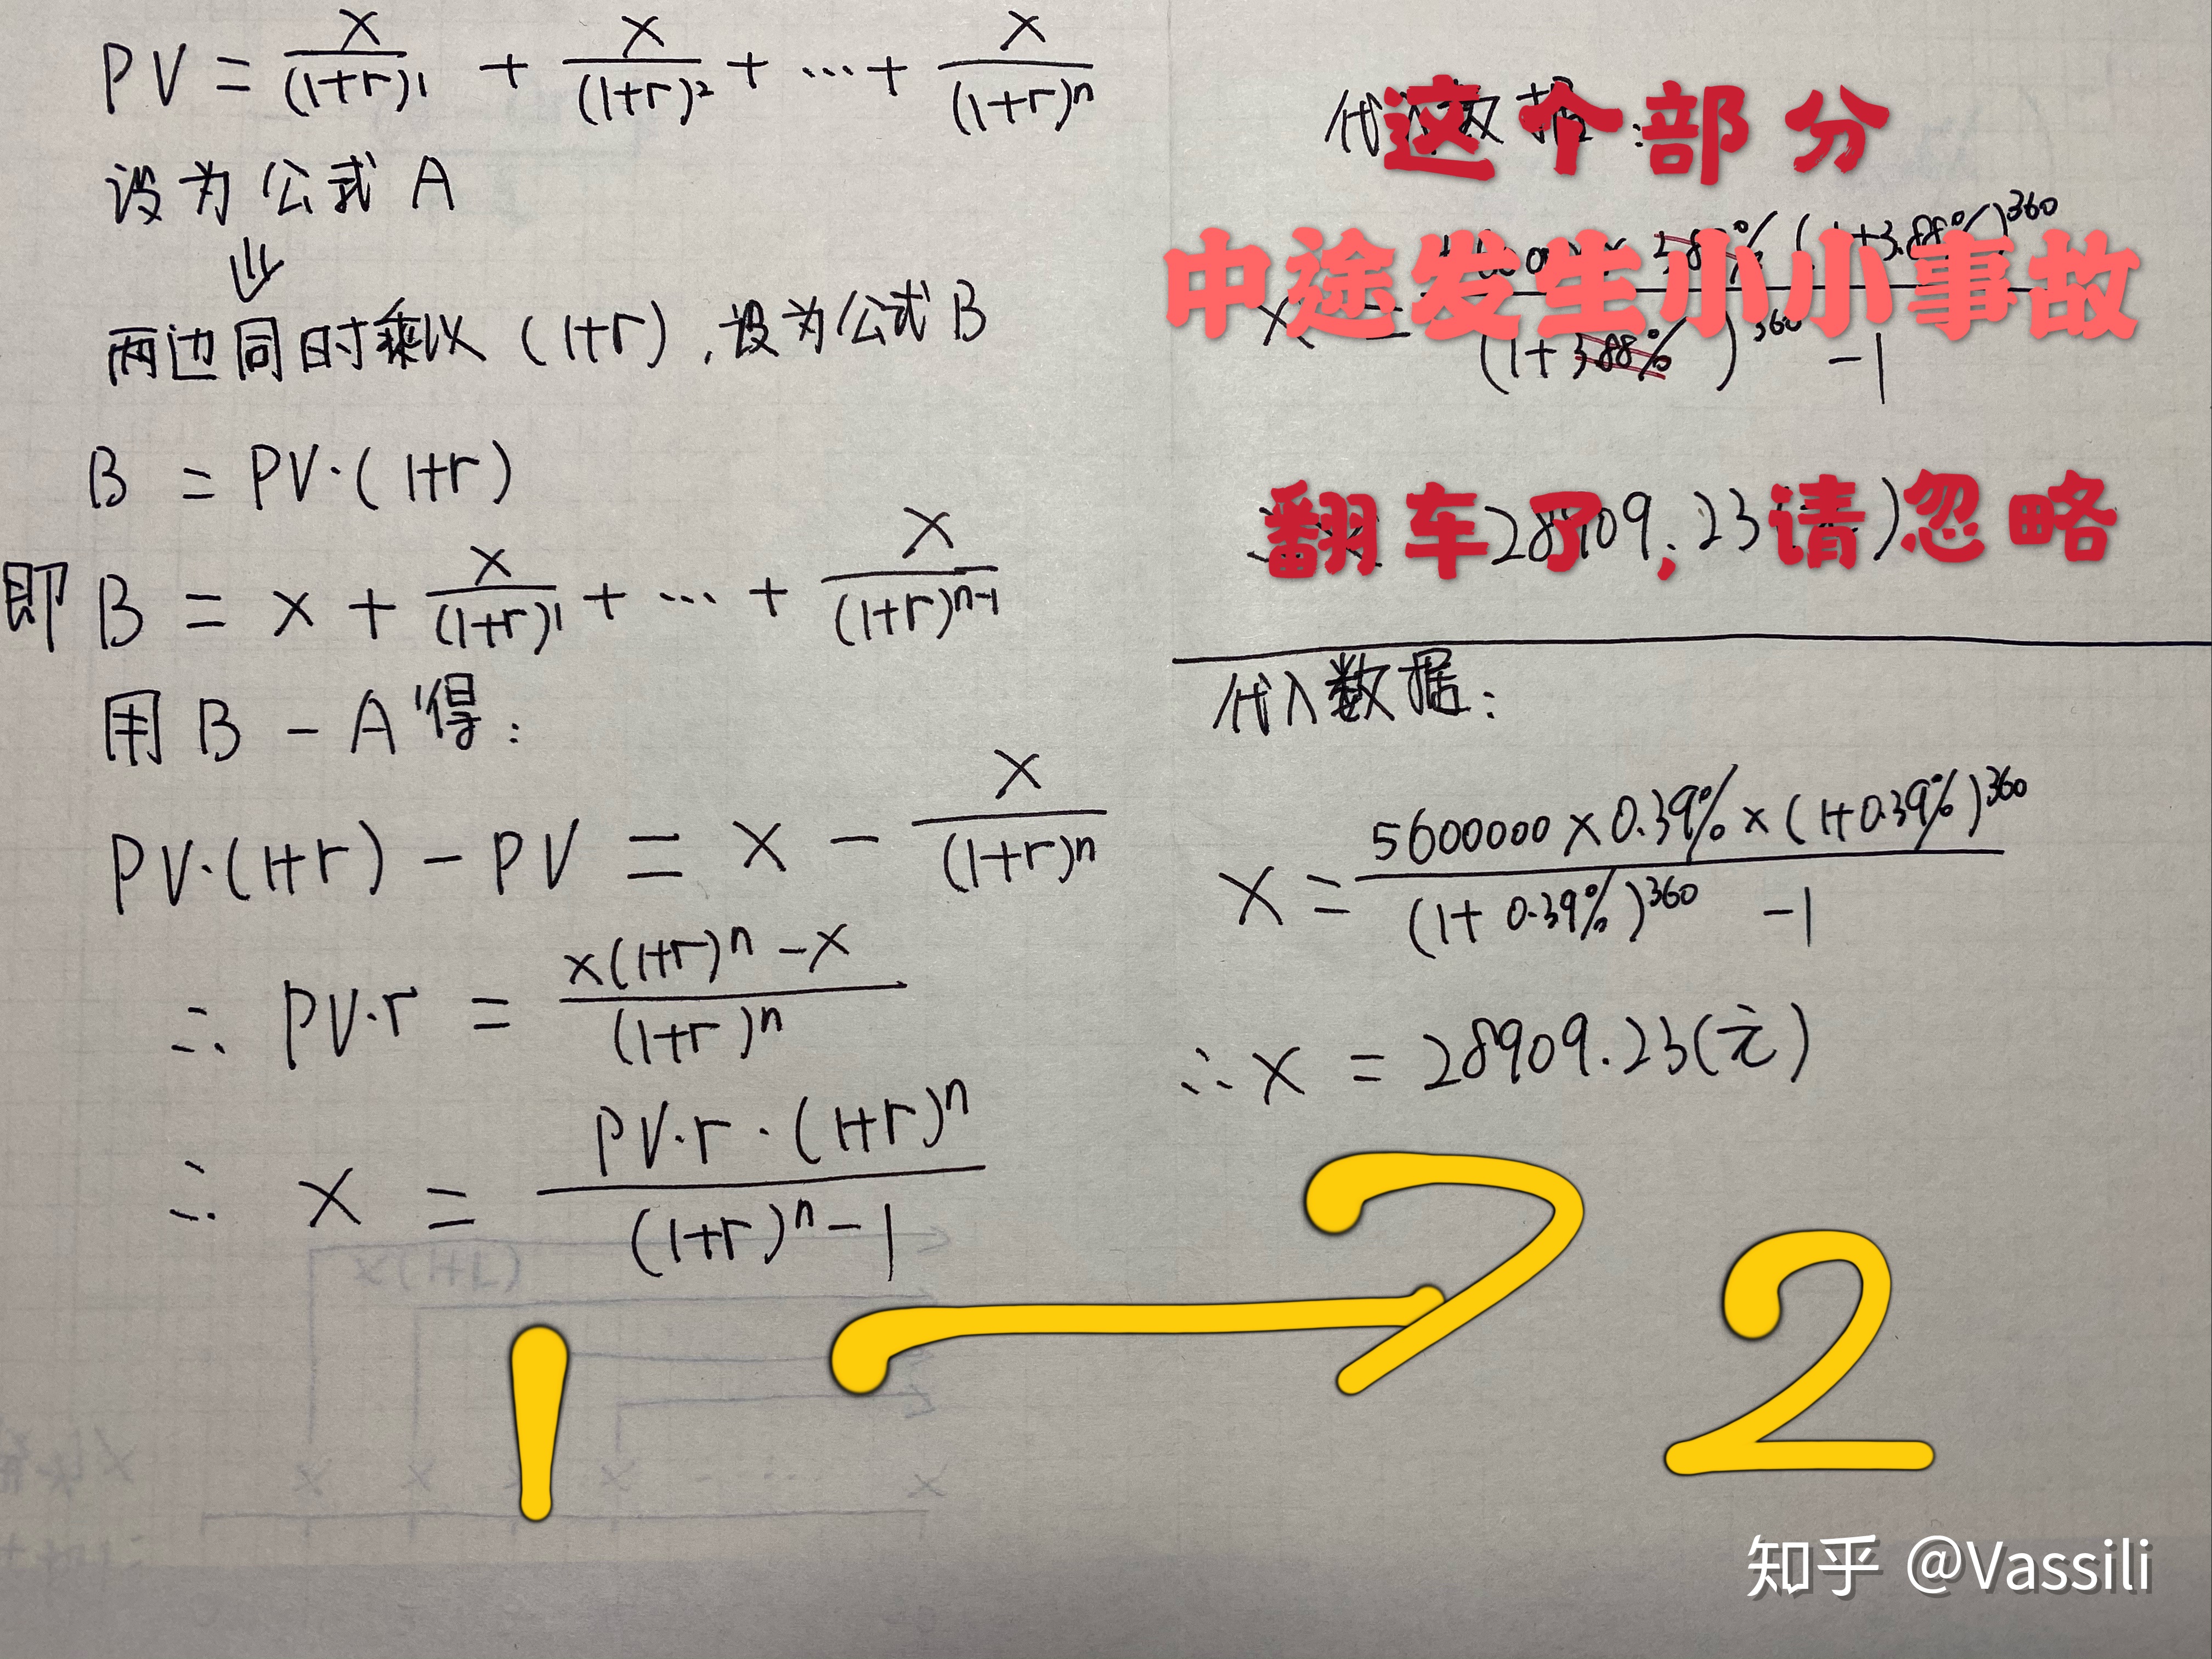 PV = x/(1+r)¹ + x/(1+r)² + ... + x/(1+r)ⁿ
设为公式 A
⇓
两边同时乘以 (1+r), 设为公式 B
B = PV·(1+r)
即 B = x + x/(1+r)¹ + ... + x/(1+r)ⁿ⁻¹
用 B - A 得:
PV·(1+r) - PV = x - x/(1+r)ⁿ
∴ PV·r = x(1+r)ⁿ - x/(1+r)ⁿ
∴ x = PV·r·(1+r)ⁿ/(1+r)ⁿ - 1
这个部分
中途发生小小事故
翻车了,请忽略
3.88% (1+3.88%)³⁶⁰
x = (1+3.88%)³⁶⁰ - 1
28909.23
代入数据:
x = 5600000 × 0.39% × (1+0.39%)³⁶⁰/(1+0.39%)³⁶⁰ - 1
∴ x = 28909.23(元)
1 → 2
知乎 @Vassili